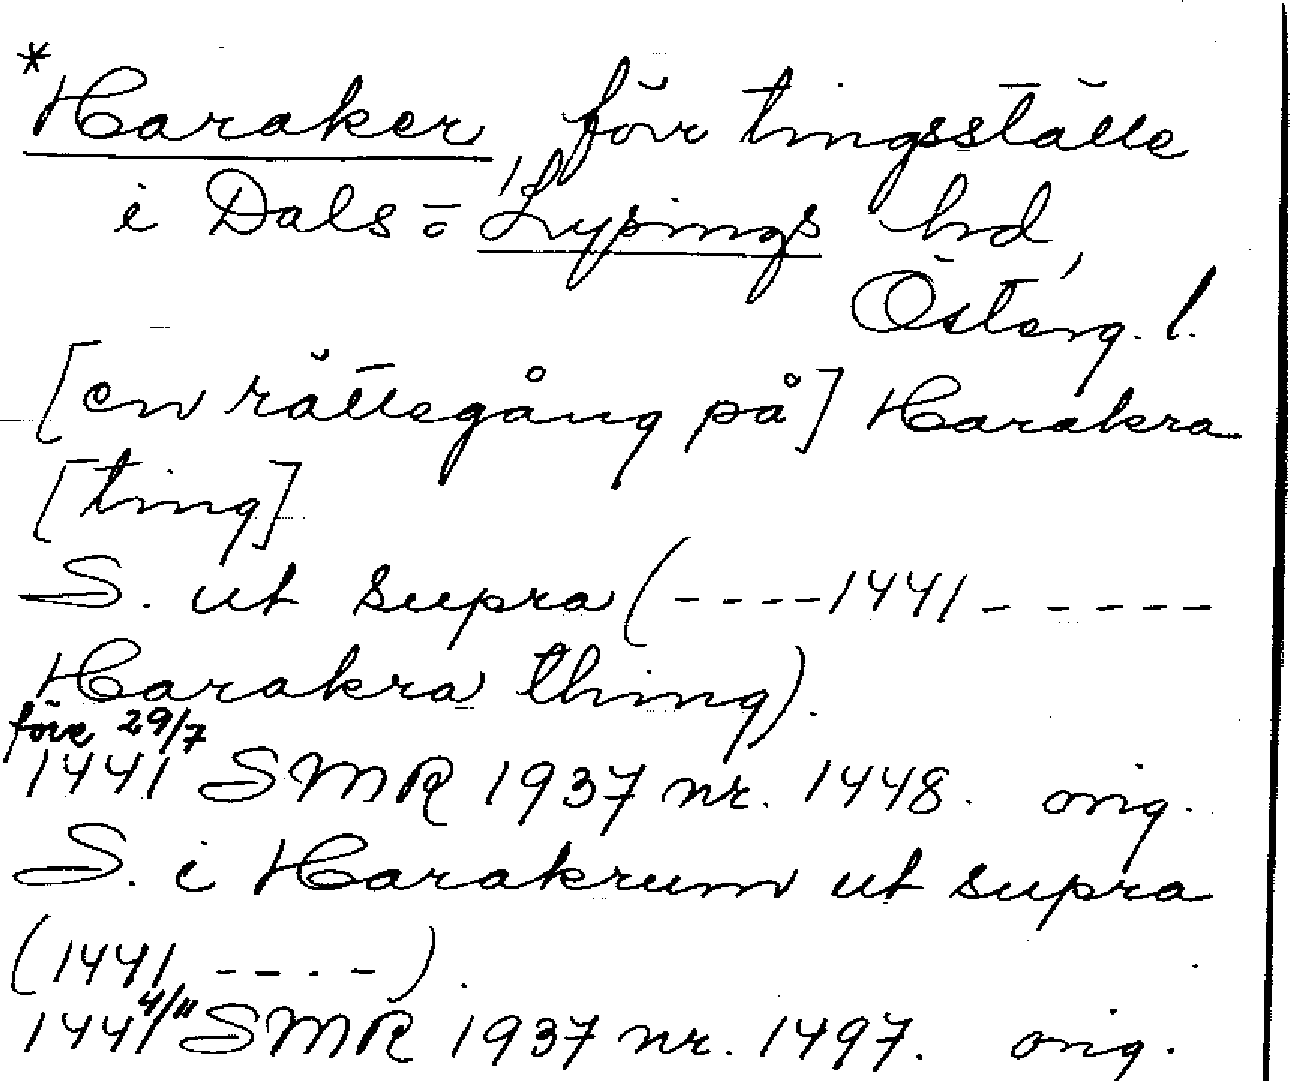 *Haraker, förr tingsställe
i Dals= Lysings hd,
Österg. l.
[en rättegång på] Harakra
[ting]
S. ut supra (----1441-----
Harakra thing).
före 29/7
1441 SMR 1937 nr. 1448. orig.
S. i Harakrum ut supra
(1441 ----).
1441 4/11 SMR 1937 nr. 1497. orig.